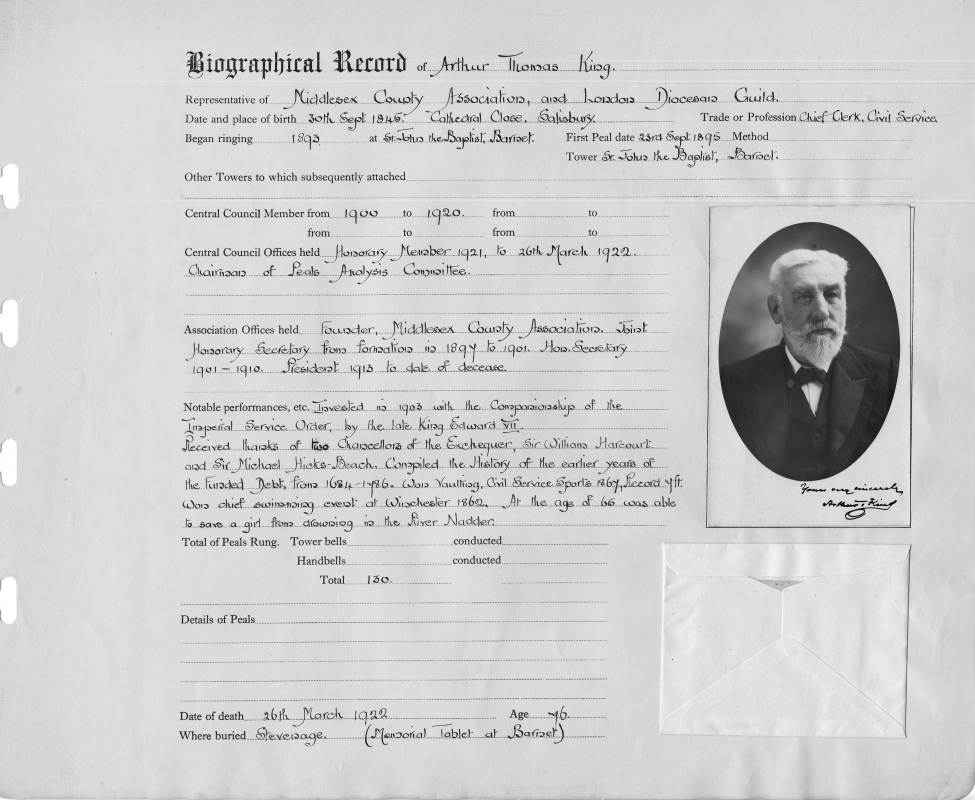 Biographical Record of Arthur Thomas King.
Representative of Middlesex County Association, and London Diocesan Guild.
Date and place of birth 30th Sept 1845. Cathedral Close, Salisbury. Trade or Profession Chief Clerk, Civil Service.
Began ringing 1893 at St. John the Baptist, Barnet. First Peal date 23rd Sept 1895 Method
Tower St. John the Baptist, Barnet.
Other Towers to which subsequently attached
Central Council Member from 1900 to 1920. from to
from to from to
Central Council Offices held Honorary Member 1921, to 26th March 1922.
Chairman of Peals Analysis Committee.
Association Offices held Founder, Middlesex County Association. Joint
Honorary Secretary from formation in 1897 to 1901. Hon. Secretary
1901 – 1910. President 1913 to date of decease.
Notable performances, etc. Invested in 1903 with the Companionship of the
Imperial Service Order, by the late King Edward VII.
Received thanks of two Chancellors of the Exchequer, Sir William Harcourt
and Sir Michael Hicks-Beach. Compiled the History of the earlier years of
the Funded Debt, from 1684–1786. Won Vaulting, Civil Service Sports 1867, Record 7ft.
Won chief swimming event at Winchester 1862. At the age of 66 was able
to save a girl from drowning in the River Nadder.
Total of Peals Rung. Tower bells conducted
Handbells conducted
Total 130.
Details of Peals
Date of death 26th March 1922 Age 76.
Where buried Stevenage. (Memorial Tablet at Barnet)
Yours very sincerely
Arthur T King